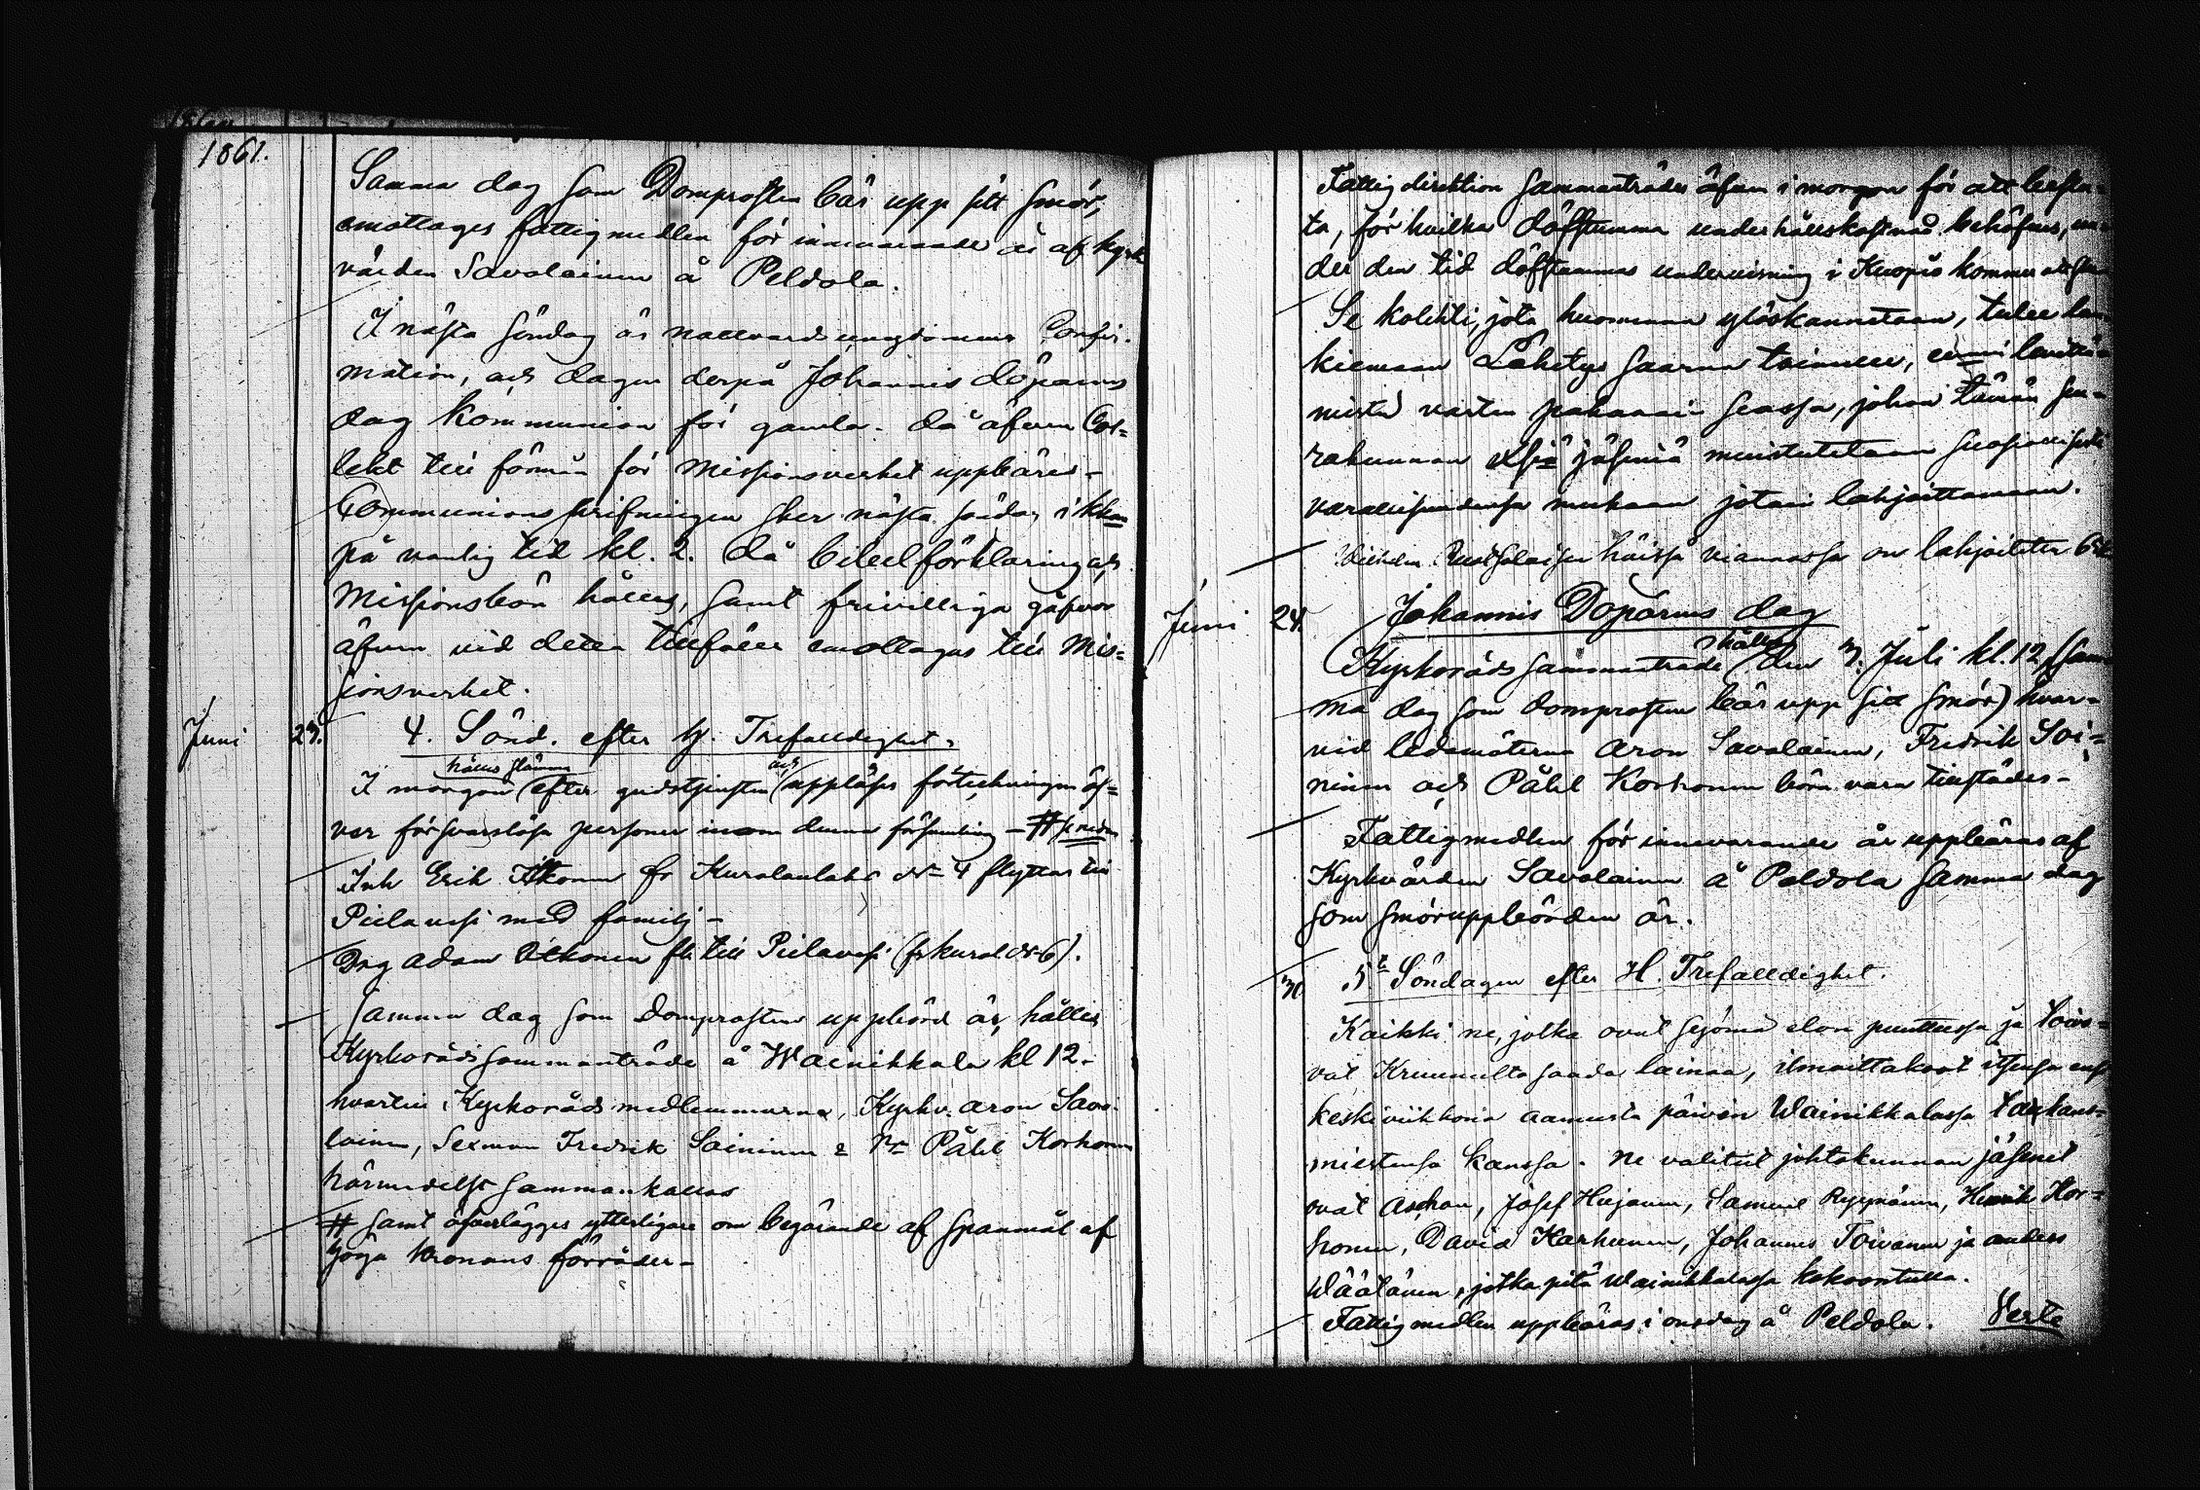 1861.
Samma dag som Domprosten bär upp sitt smör,
emottages fattigmedlen för innevarande år af kyrk
värden Savolainen å Peldola.
I nästa söndag är nattvardsungdomens Confir-
mation, och dagen derpå Johannis döparens
dag kommunion för gamla. då äfven Col=
lekt till förmån för Missionsverket uppbäres –
Communions skrifningen sker nästa söndag i kkan
på vanlig tid kl. 2. då bibelförklaring och
Missionsbön hålles, samt frivilliga gåfvor
äfven vid detta tillfälle emottagas till Mis=
sionsverket.
Juni 23. 4. Sönd. efter H. Trefalldighet.
hålles stämma
I morgon efter gudstjensten och uppläses förteckningen öf=
ver försvarslösa personer inom denna församling – # se nedan
Inh Erik Itkonen fr Kuralanlaks № 4 flyttar till
Pielavesi med familj –
Drg Adam Itkonen fl. till Pielavesi (fr kural № 6).
Samma dag som Domprostens uppbörd är, hålles
Kyrkorådssammanträde å Wainikkala kl 12.
hvartill Kyrkorådsmedlemmarna, Kyrkv. Aron Savo-
lainen, Sexman Fredrik Soininen & Påhl Korhonen
härmedelst sammankallas
# samt öfverlägges ytterligare om begärande af spanmål af
höga Kronans förråder –
Fattigdirektion sammanträder äfven i morgon för att besluta=
ta, för hvilka döfstumma underhållskostnad behöfves, un=
der den tid döfstummas undervisning i Kuopio kommer att ske
Se kolehti, jota huomenna ylöskannetaan, tulee lan
kiemaan Lähetys saarna toimeen, evankeliumin levittä=
mistä varten pakanain seassa, johon tämän seu=
rakunnan jäseniä muistutetaan suosiollisesti
varallisuudensa mukaan jotain lahjoittamaan.
häissä viannassa on lahjoitettu
Juni 24. Johannis Döparens dag
hålles
Kyrkorådssammanträde den 3. Juli kl. 12 (sam
ma dag som domprosten bär upp sitt smör) hvar=
vid ledamöterna Aron Savolainen, Fredrik Soi=
ninen och Påhl Korhonen böra vara tillstädes –
Fattigmedlen för innevarande år uppbäras af
Kyrkvärden Savolainen å Peldola samma dag
som smöruppbörden är.
30. 5te Söndagen efter H. Trefalldighet.
Kaikki ne, jotka ovat syömä elon puuttessa ja toivo=
vat Kruunulta saada lainaa, ilmoittakoot itsensä ens
keskiviikkona aamusta päivän Wainikkalassa todistus=
miestensä kanssa. Ne valitut johtokunnan jäsenet
ovat Aschan, Josef Hujanen, Samuel Ryynänen, Henrik Kor=
honen, David Karhunen, Johannes Toivanen ja Anders
Wäätäinen, jotka pitä Wainikkalassa kokoontulla.
Fattigmedlen uppbäras i onsdag å Peldola. Verte